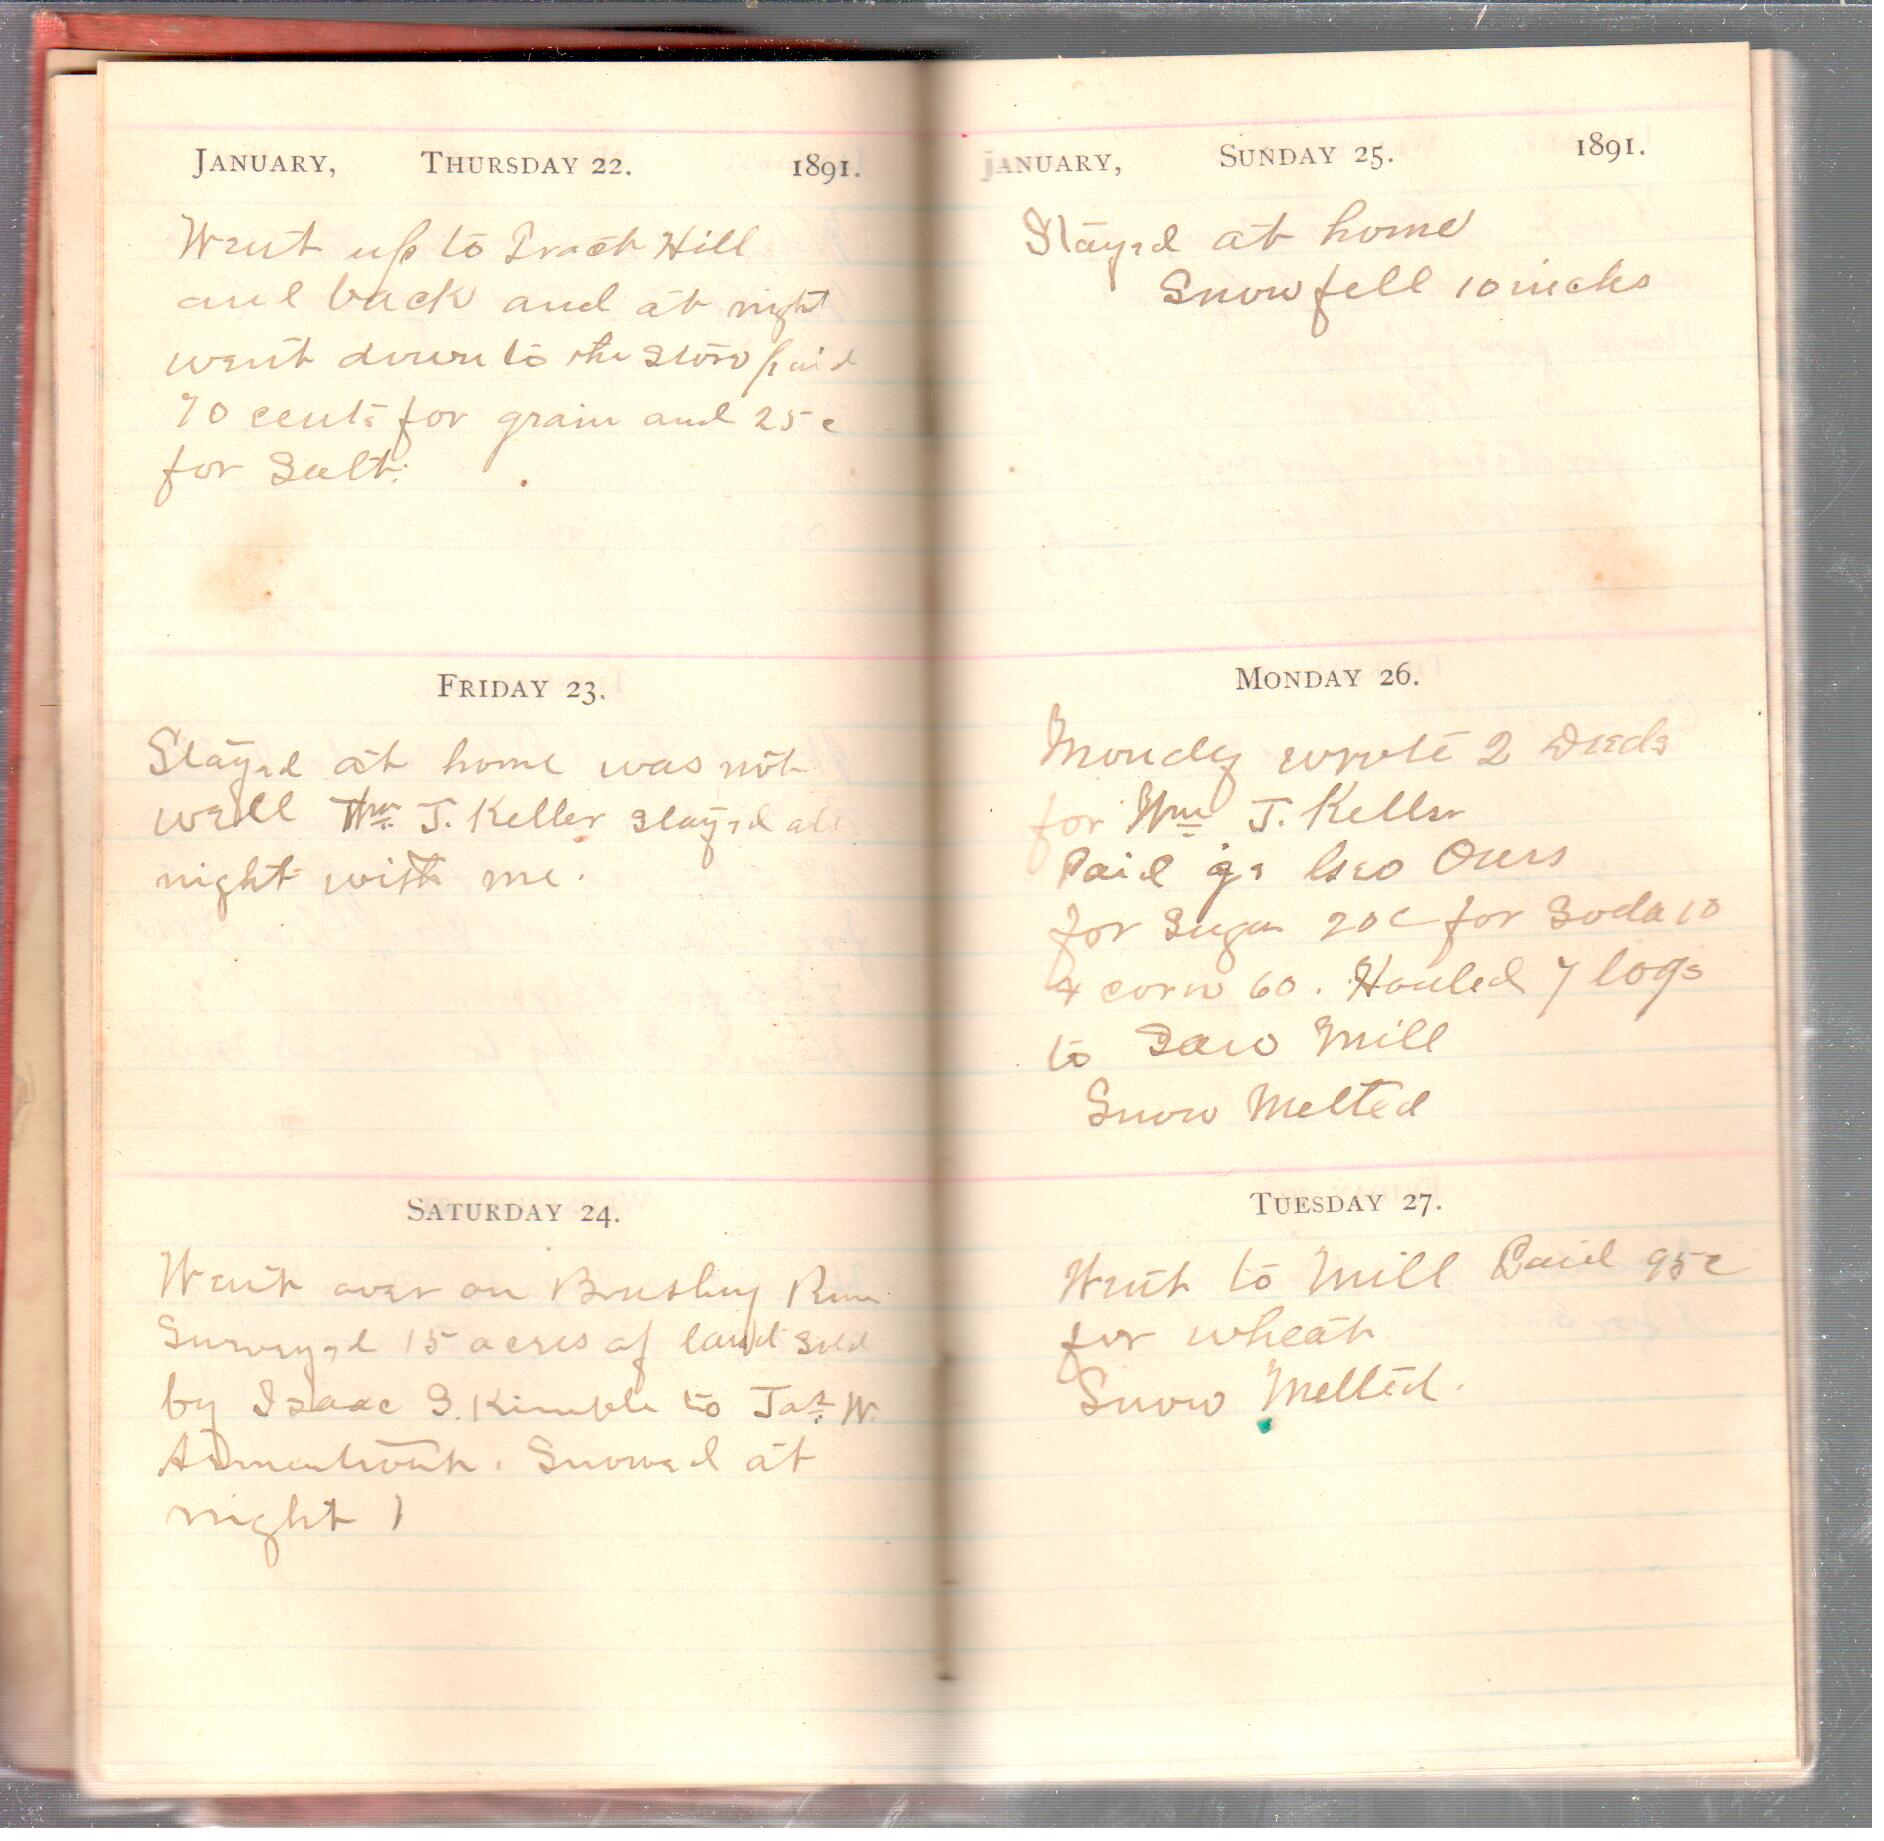 JANUARY, THURSDAY 22. 1891.
Went up to Tract Hill
and back and at night
went down to the Store paid
70 cents for grain and 25c
for Salt.
FRIDAY 23.
Stayed at home was not
well Wm. J. Keller stayed all
night with me.
SATURDAY 24.
Went over on Brushy Run
Surveyed 15 acres of land sold
by Isaac S. Kimple to Jas. W.
Armentrout. Snowed at
night
JANUARY, SUNDAY 25. 1891.
Stayed at home
Snow fell 10 inches
MONDAY 26.
Monday wrote 2 Deeds
for Wm J. Keller
Paid Geo Ours
for Sugar 20c for Soda 10
& corn 60. Hauled 7 logs
to Saw Mill
Snow Melted
TUESDAY 27.
Went to Mill Paid 95c
for wheat
Snow Melted.